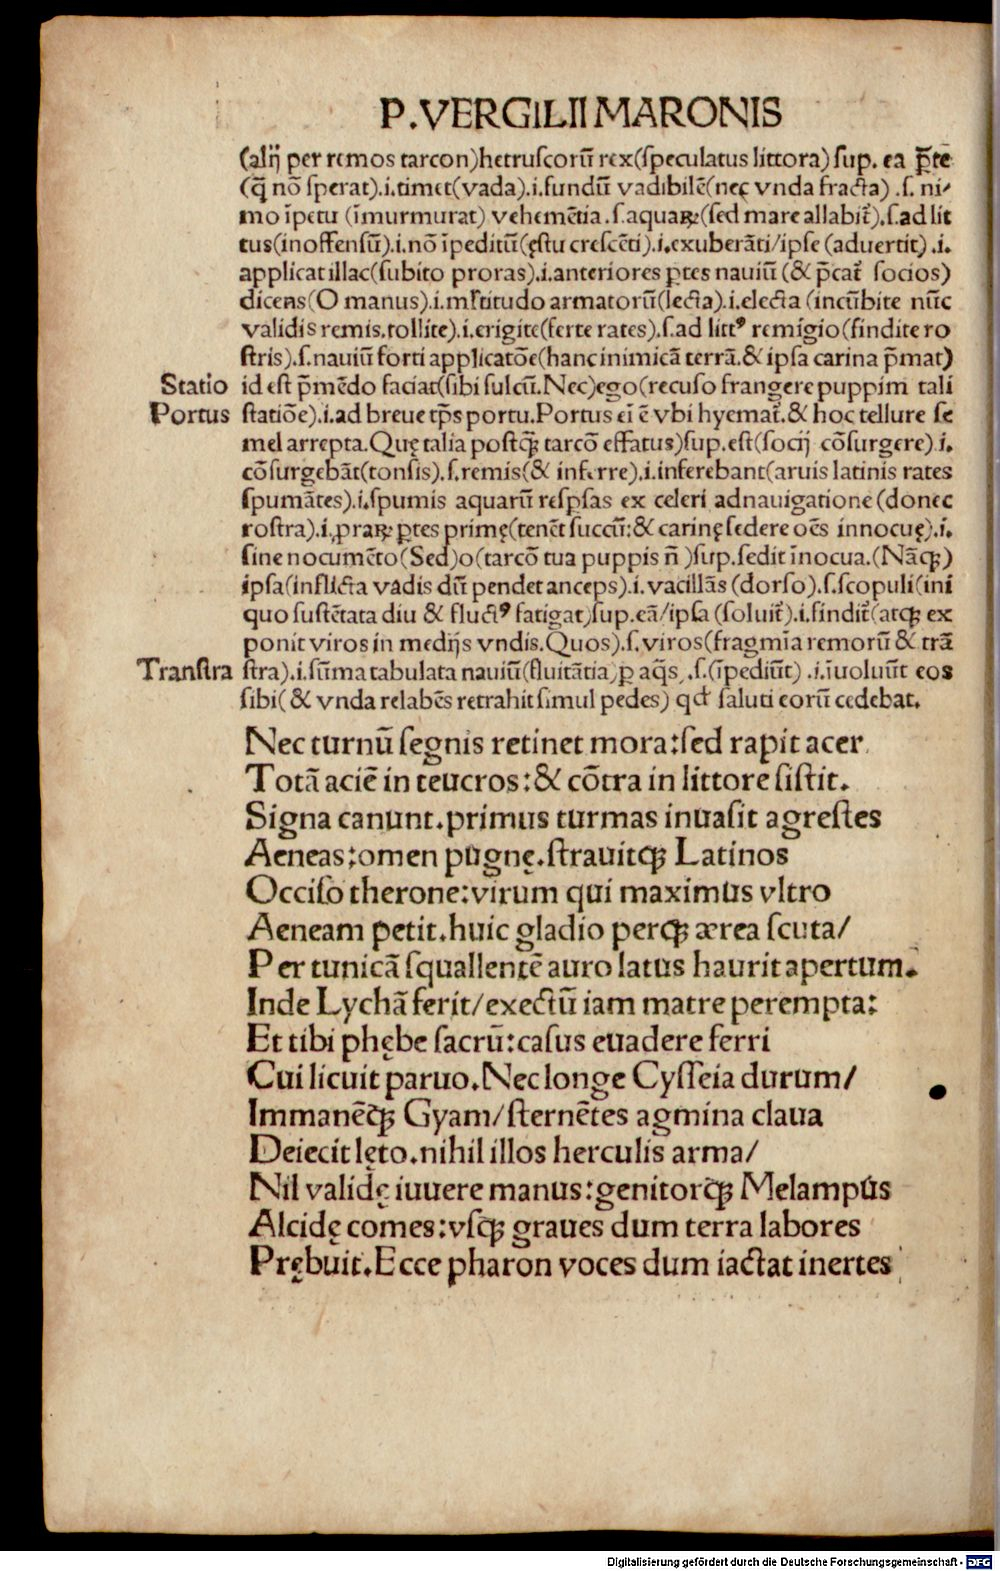 P.VERGILII MARONIS
(alij per remos tarcon)hetruscorū rex(speculatus littora)sup. ea p̄te
(q̄ nō sperat).i.timet(vada).i.fundū vadibilē(nec vnda fracta) .s. ni/
mo īpetu (īmurmurat) vehemētia.s.aquaꝝ(sed mare allabit᷑).s.ad lit
tus(inoffensū).i.nō īpeditū(ęstu crescēti).i.exuberāti/ipse(advertit).i.
applicat illac(subito proras).i.anteriores ꝑtes nauiū(& p̄cat᷑ socios)
dicens(O manus).i.mĺtitudo armatorū(lecta).i.electa (incūbite nūc
validis remis.tollite).i.erigite(ferte rates).s.ad littꝰ remigio(findite ro
stris).s.nauiū forti applicatōe(hanc inimicā terrā.& ipsa carina p̄mat)
Statio id est p̄mēdo faciat(sibi sulcū.Nec)ego(recuso frangere puppim tali
Portus statiōe).i.ad breue tp̄s portu.Portus ei ē vbi hyemat᷑.& hoc tellure se
mel arrepta.Quę talia postꝙ̄ tarcō effatus)sup.est(socij cōsurgere).i.
cōsurgebāt(tonsis).s.remis(& inferre).i.inferebant(aruis latinis rates
spumātes).i.spumis aquarū respsas ex celeri adnauigatione(donec
rostra).i.praꝝ ꝑtes primę(tenēt succū:& carinę sedere oēs innocuę).i.
sine nocumēto(Sed)o(tarcō tua puppis n̄ )sup.sedit īnocua.(Nāꝙ)
ipsa(inflicta vadis dū pendet anceps).i.vacillās (dorso).s.scopuli(ini
quo sustētata diu & fluctꝰ fatigat)sup.eā/ipsa (soluit᷑).i.findit᷑(atꝙ ex
ponit viros in medijs vndis.Quos).s.viros(fragmīa remorū & trā
Transtra stra).i.sūma tabulata nauiū(fluitātia)ꝑ aq̄s .s.(īpediūt) .i.īuoluūt eos
sibi( & vnda relabēs retrahit simul pedes) qđ saluti eorū cedebat.
Nec turnū segnis retinet mora:sed rapit acer
Totā aciē in teucros:& cōtra in littore sistit.
Signa canunt.primus turmas inuasit agrestes
Aeneas:omen pugnę.strauitꝙ Latinos
Occiso therone:virum qui maximus vltro
Aeneam petit.huic gladio perꝙ ærea scuta/
Per tunicā squallentē auro latus haurit apertum.
Inde Lychā ferit/exectū iam matre perempta:
Et tibi phębe sacrū:casus euadere ferri
Cui licuit paruo.Nec longe Cysseia durum/
Immanēꝙ Gyam/sternētes agmina claua
Deiecit lęto.nihil illos herculis arma/
Nil validę iuuere manus:genitorꝙ Melampus
Alcidę comes:vsꝙ graues dum terra labores
Prębuit.Ecce pharon voces dum iactat inertes
Digitalisierung gefördert durch die Deutsche Forschungsgemeinschaft - DFG